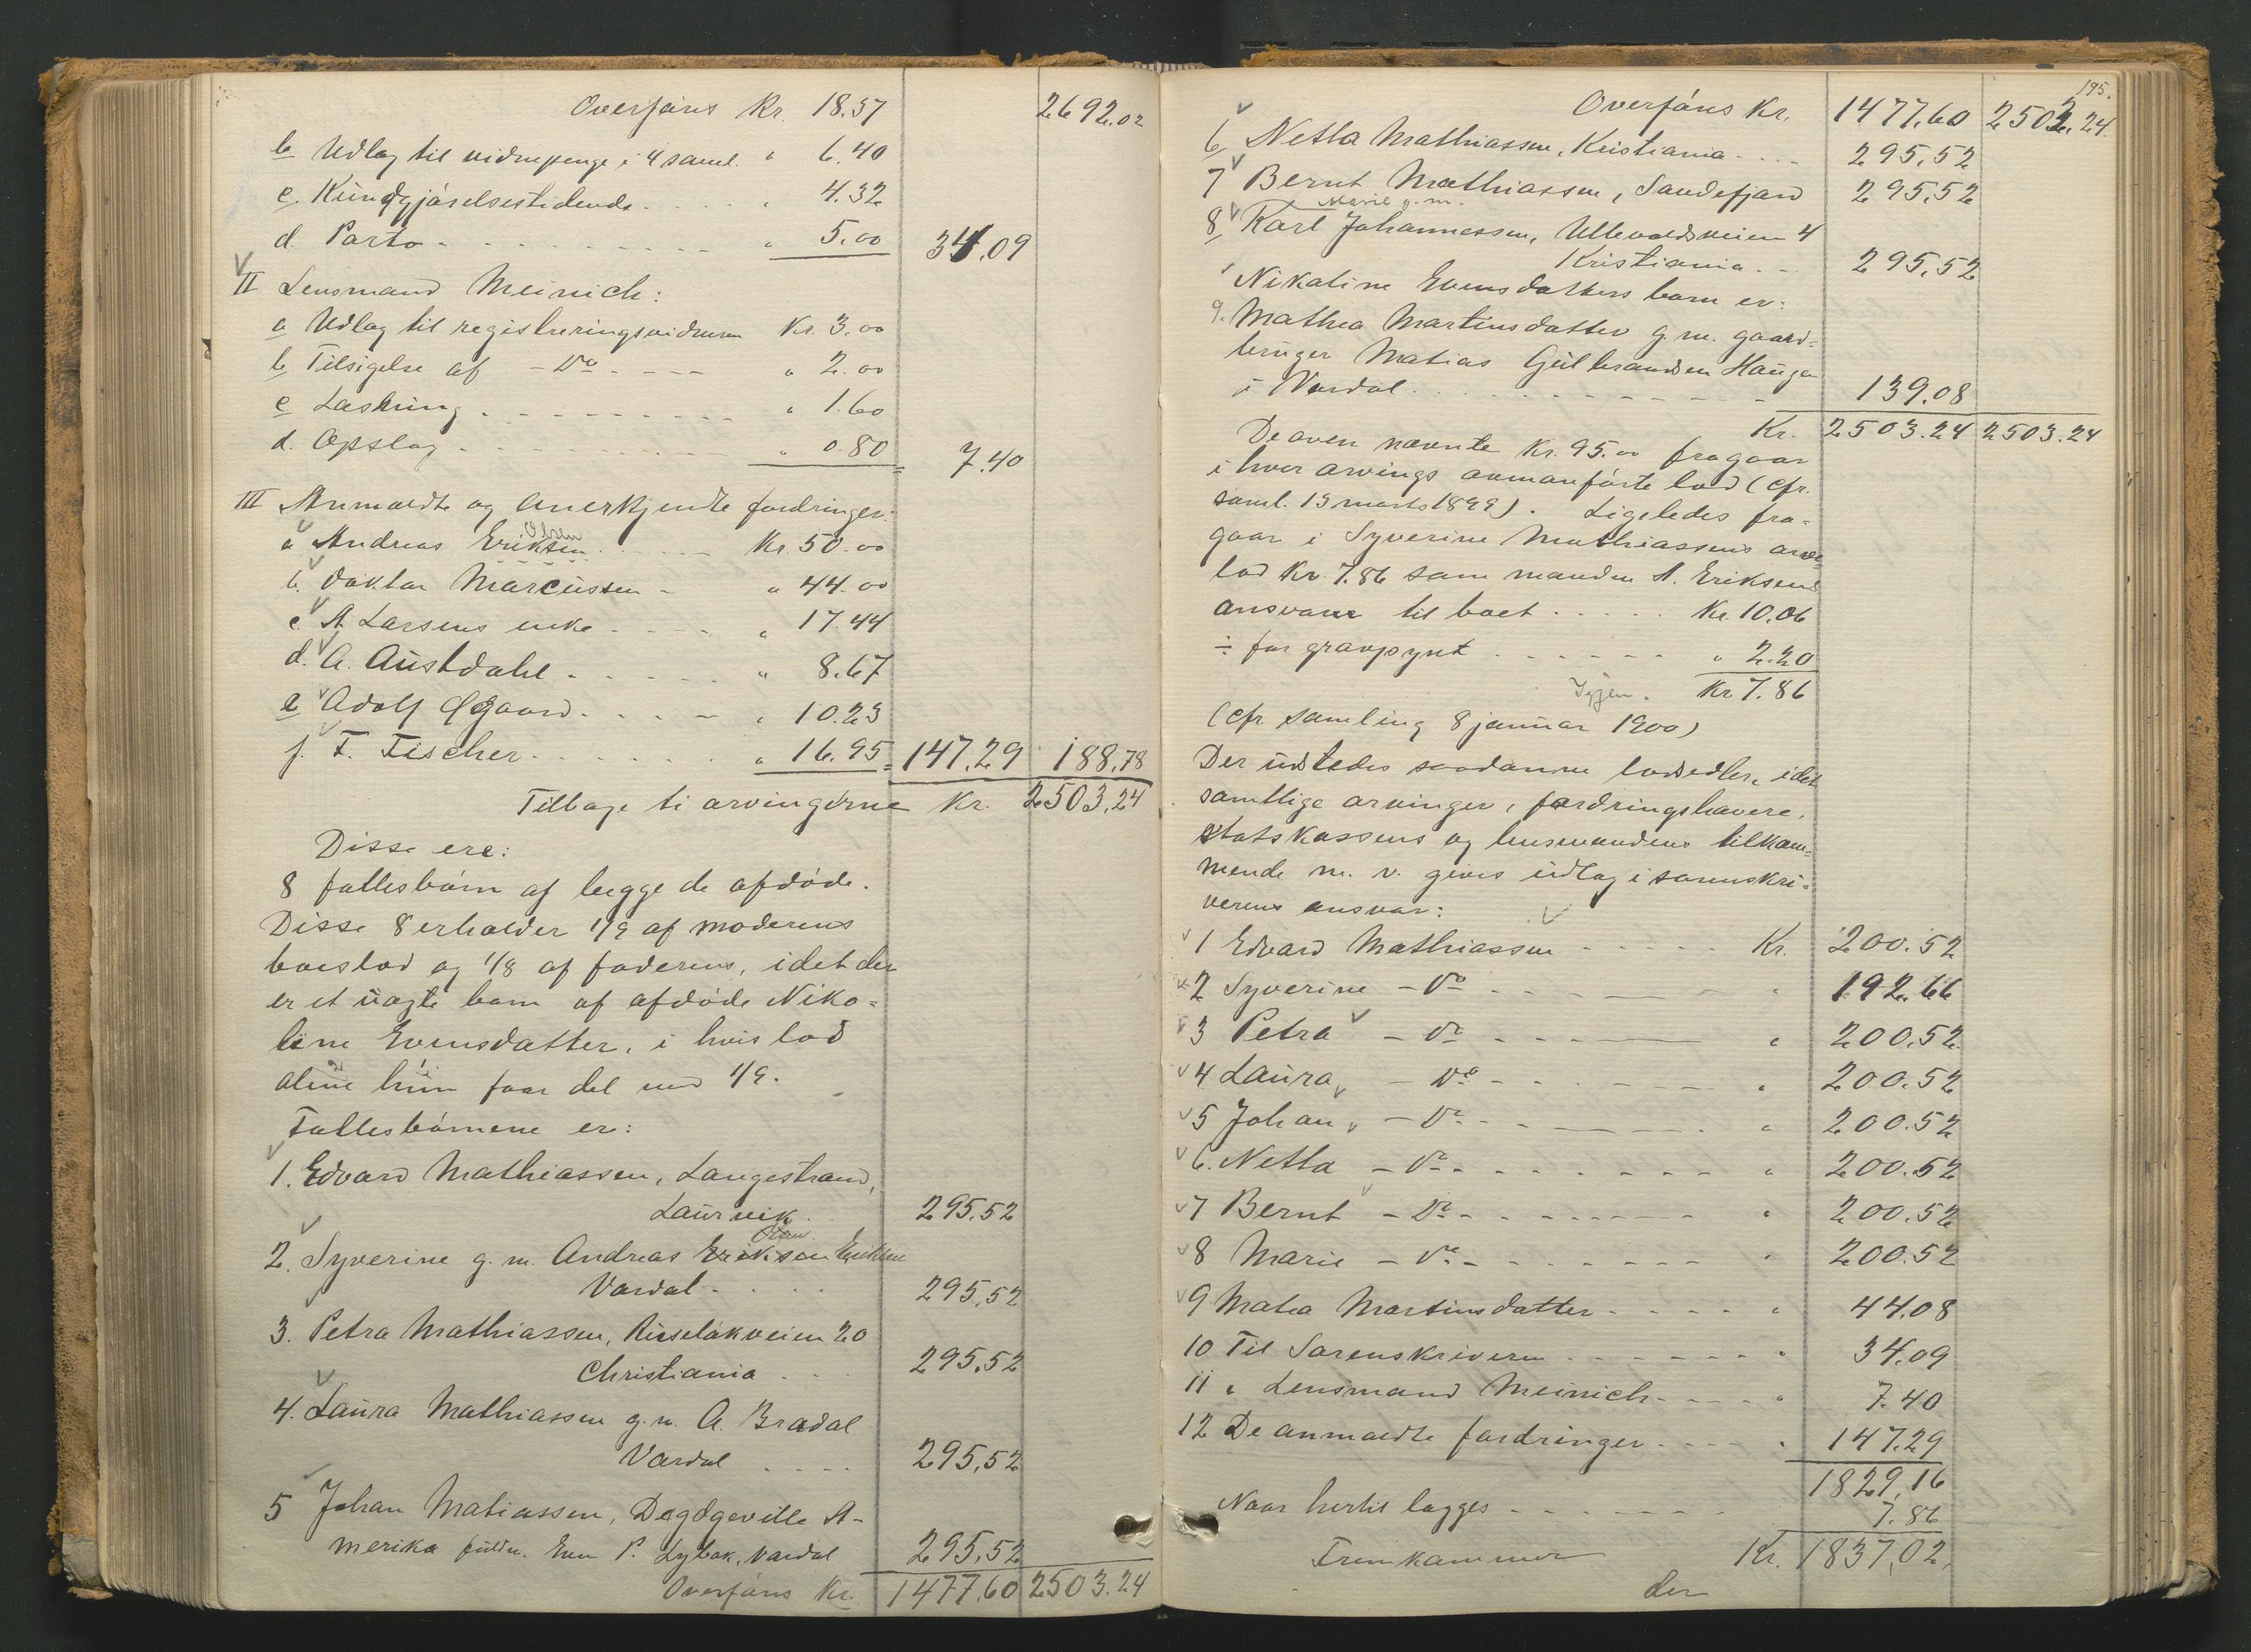 Overføres Kr. 18.57 2692.02
b Udlag til vidnepenge i 4 saml. " 6.40
c. Kundgjørelsestidende " 4.32
d. Porto " 5.00 34.09
II Lensmand Meinich:
a Udlag til registreringsvidnerne Kr. 3.00
b Tilsigelse af - Do " 2.00
c Læsning " 1.60
d. Opslag " 0.80 7.40
III Anmældte og anerkjendte fordringer:
a Andreas Eriksen Kr. 50.00
b. Doktor Marcussen " 44.00
c. A Larsens enke " 17.44
d. A. Austdahl " 8.67
e Adolf Øgaard " 10.23
f. F. Fischer " 16.95 147.29 188.78
Tilbage ti arvingerne Kr. 2503.24
Disse ere:
8 fællesbørn af begge de afdøde.
Disse 8 erholder 1/9 af moderens
boeslod og 1/8 af faderens, idet der
er et uægte barn af afdøde Niko-
line Evensdatter, i hvis lod
alene hun faar del med 1/9.
Fællesbørnene er:
1. Edvard Mathiassen, Langestrand,
Laurvik 295.52
2. Syverine g. m. Andreas Eriksen Eriksen
Vardal 295.52
3. Petra Mathiassen, Ruseløkveien 20
Christiania 295.52
4. Laura Mathiassen g. m. A. Bradal
Vardal 295.52
5 Johan Matiassen, Dogdgeville A-
merika fuldm. Even P. Lybæk, Vardal 295.52
Overføres Kr. 1477.60 2503.24
195.
Overføres Kr. 1477.60 2503.24
6 Netta Mathiassen, Kristiania 295.52
7 Bernt Mathiassen, Sandefjord 295.52
Marie g. m.
8 Karl Johannessen, Ullevoldsveien 4
Kristiania 295.52
Nikoline Evensdatters barn er:
9. Mathea Martinsdatter g. m. gaard-
bruger Matias Gulbrandsen Haugen
i Vardal 139.08
Kr. 2503.24 2503.24
De oven nævnte Kr. 95.00 fragaar
i hver arvings ovenanførte lod (cfr.
saml. 15 marts 1899). Ligeledes fra-
gaar i Syverine Mathiassens arve-
lod Kr. 7.86 som manden A. Eriksens
ansvar til boet Kr. 10.06
÷ for gravpynt " 2.20
Igjen. Kr 7.86
(cfr samling 8 januar 1900)
Der udstedes saadanne lodsedler, idet
samtlige arvinger, fordringshavere,
statskassens og lensmandens tilkom-
mende m. v. gives udlag i sorenskri-
verens ansvar:
1 Edvard Mathiassen Kr. 200.52
2 Syverine - Do " 192.66
3 Petra - Do " 200.52
4 Laura - Do " 200.52
5 Johan - Do " 200.52
6. Netta - Do " 200.52
7 Bernt - Do " 200.52
8 Marie - Do " 200.52
9 Matea Martinsdatter " 44.08
10 Til Sorenskriveren " 34.09
11 " Lensmand Meinich " 7.40
12 De anmældte fordringer " 147.29
1829.16
Naar hertil lægges 7.86
Fremkommer Kr. 1837.02.
der